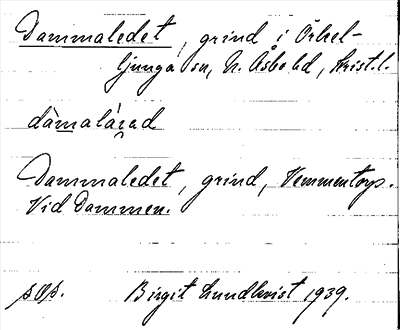 Dammaledet, grind i Örkel-
ljunga sn, N. Åsbo hd, Krist.l.
dàmalárad
Dammaledet, grind, Vemmentorp.
Vid Dammen.
sop. Birgit Lundkvist 1939.